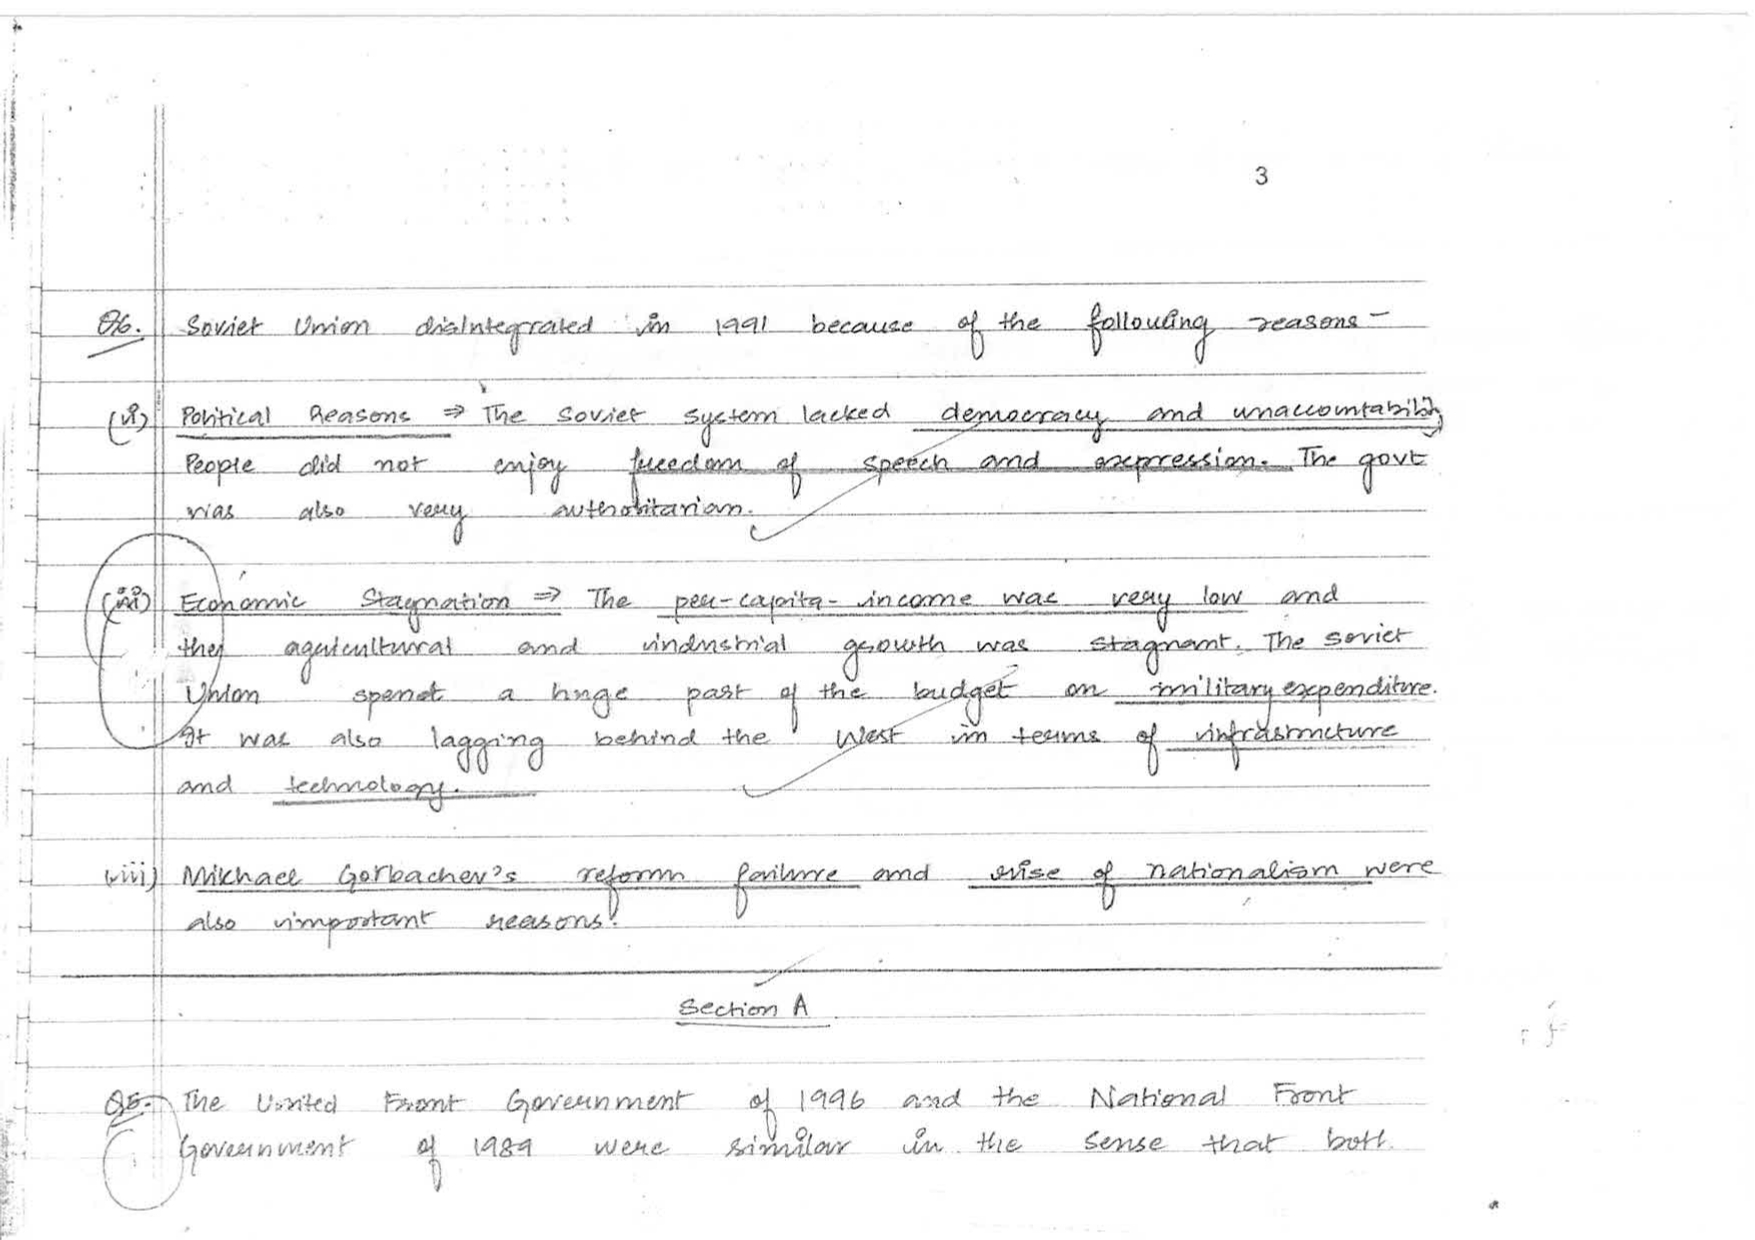 3
Q6. Soviet Union disintegrated in 1991 because of the following reasons-
(i) Political Reasons ⇒ The Soviet system lacked democracy and unaccountability
People did not enjoy freedom of speech and expression. The govt
was also very authoritarian.
(ii) Economic Stagnation ⇒ The per-capita-income was very low and
the agricultural and industrial growth was stagnant. The soviet
Union spend a huge part of the budget on military expenditure.
It was also lagging behind the West in terms of infrastructure
and technology.
iii) Mikhael Gorbachev's reform failure and rise of nationalism were
also important reasons.
Section A
Q5. The United Front Government of 1996 and the National Front
Government of 1989 were similar in the sense that both